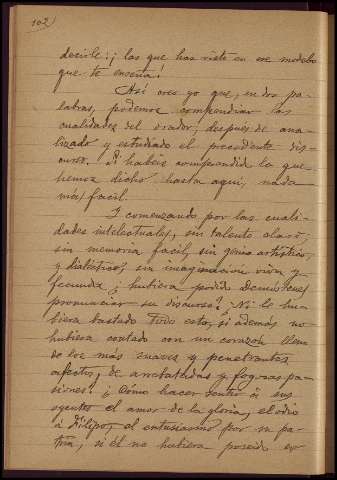 102
decirle: ¡las que has visto en ese modelo
que te enseña!
Así creo yo que, en dos pa-
labras, podemos compendiar las
cualidades del orador, después de ana-
lizado y estudiado el precedente dis-
curso. Si habéis comprendido lo que
hemos dicho hasta aquí, nada
más facil.
Y comenzando por las cuali-
dades intelectuales, sin talento claro,
sin memoria facil, sin genio artístico,
y dialéctico, sin imaginacion viva y
fecunda ¿hubiera podido Demóstenes
pronunciar su discurso? Ni le hu-
biera bastado todo esto, si además no
hubiera contado con un corazón lleno
de los más suaves y penetrantes
afectos, de arrebatadas y fogosas pa-
siones. ¿Cómo hacer sentir á sus
oyentes el amor de la gloria, el odio
á Filipo, el entusiasmo por su pa-
tria, si él no hubiera poseido en